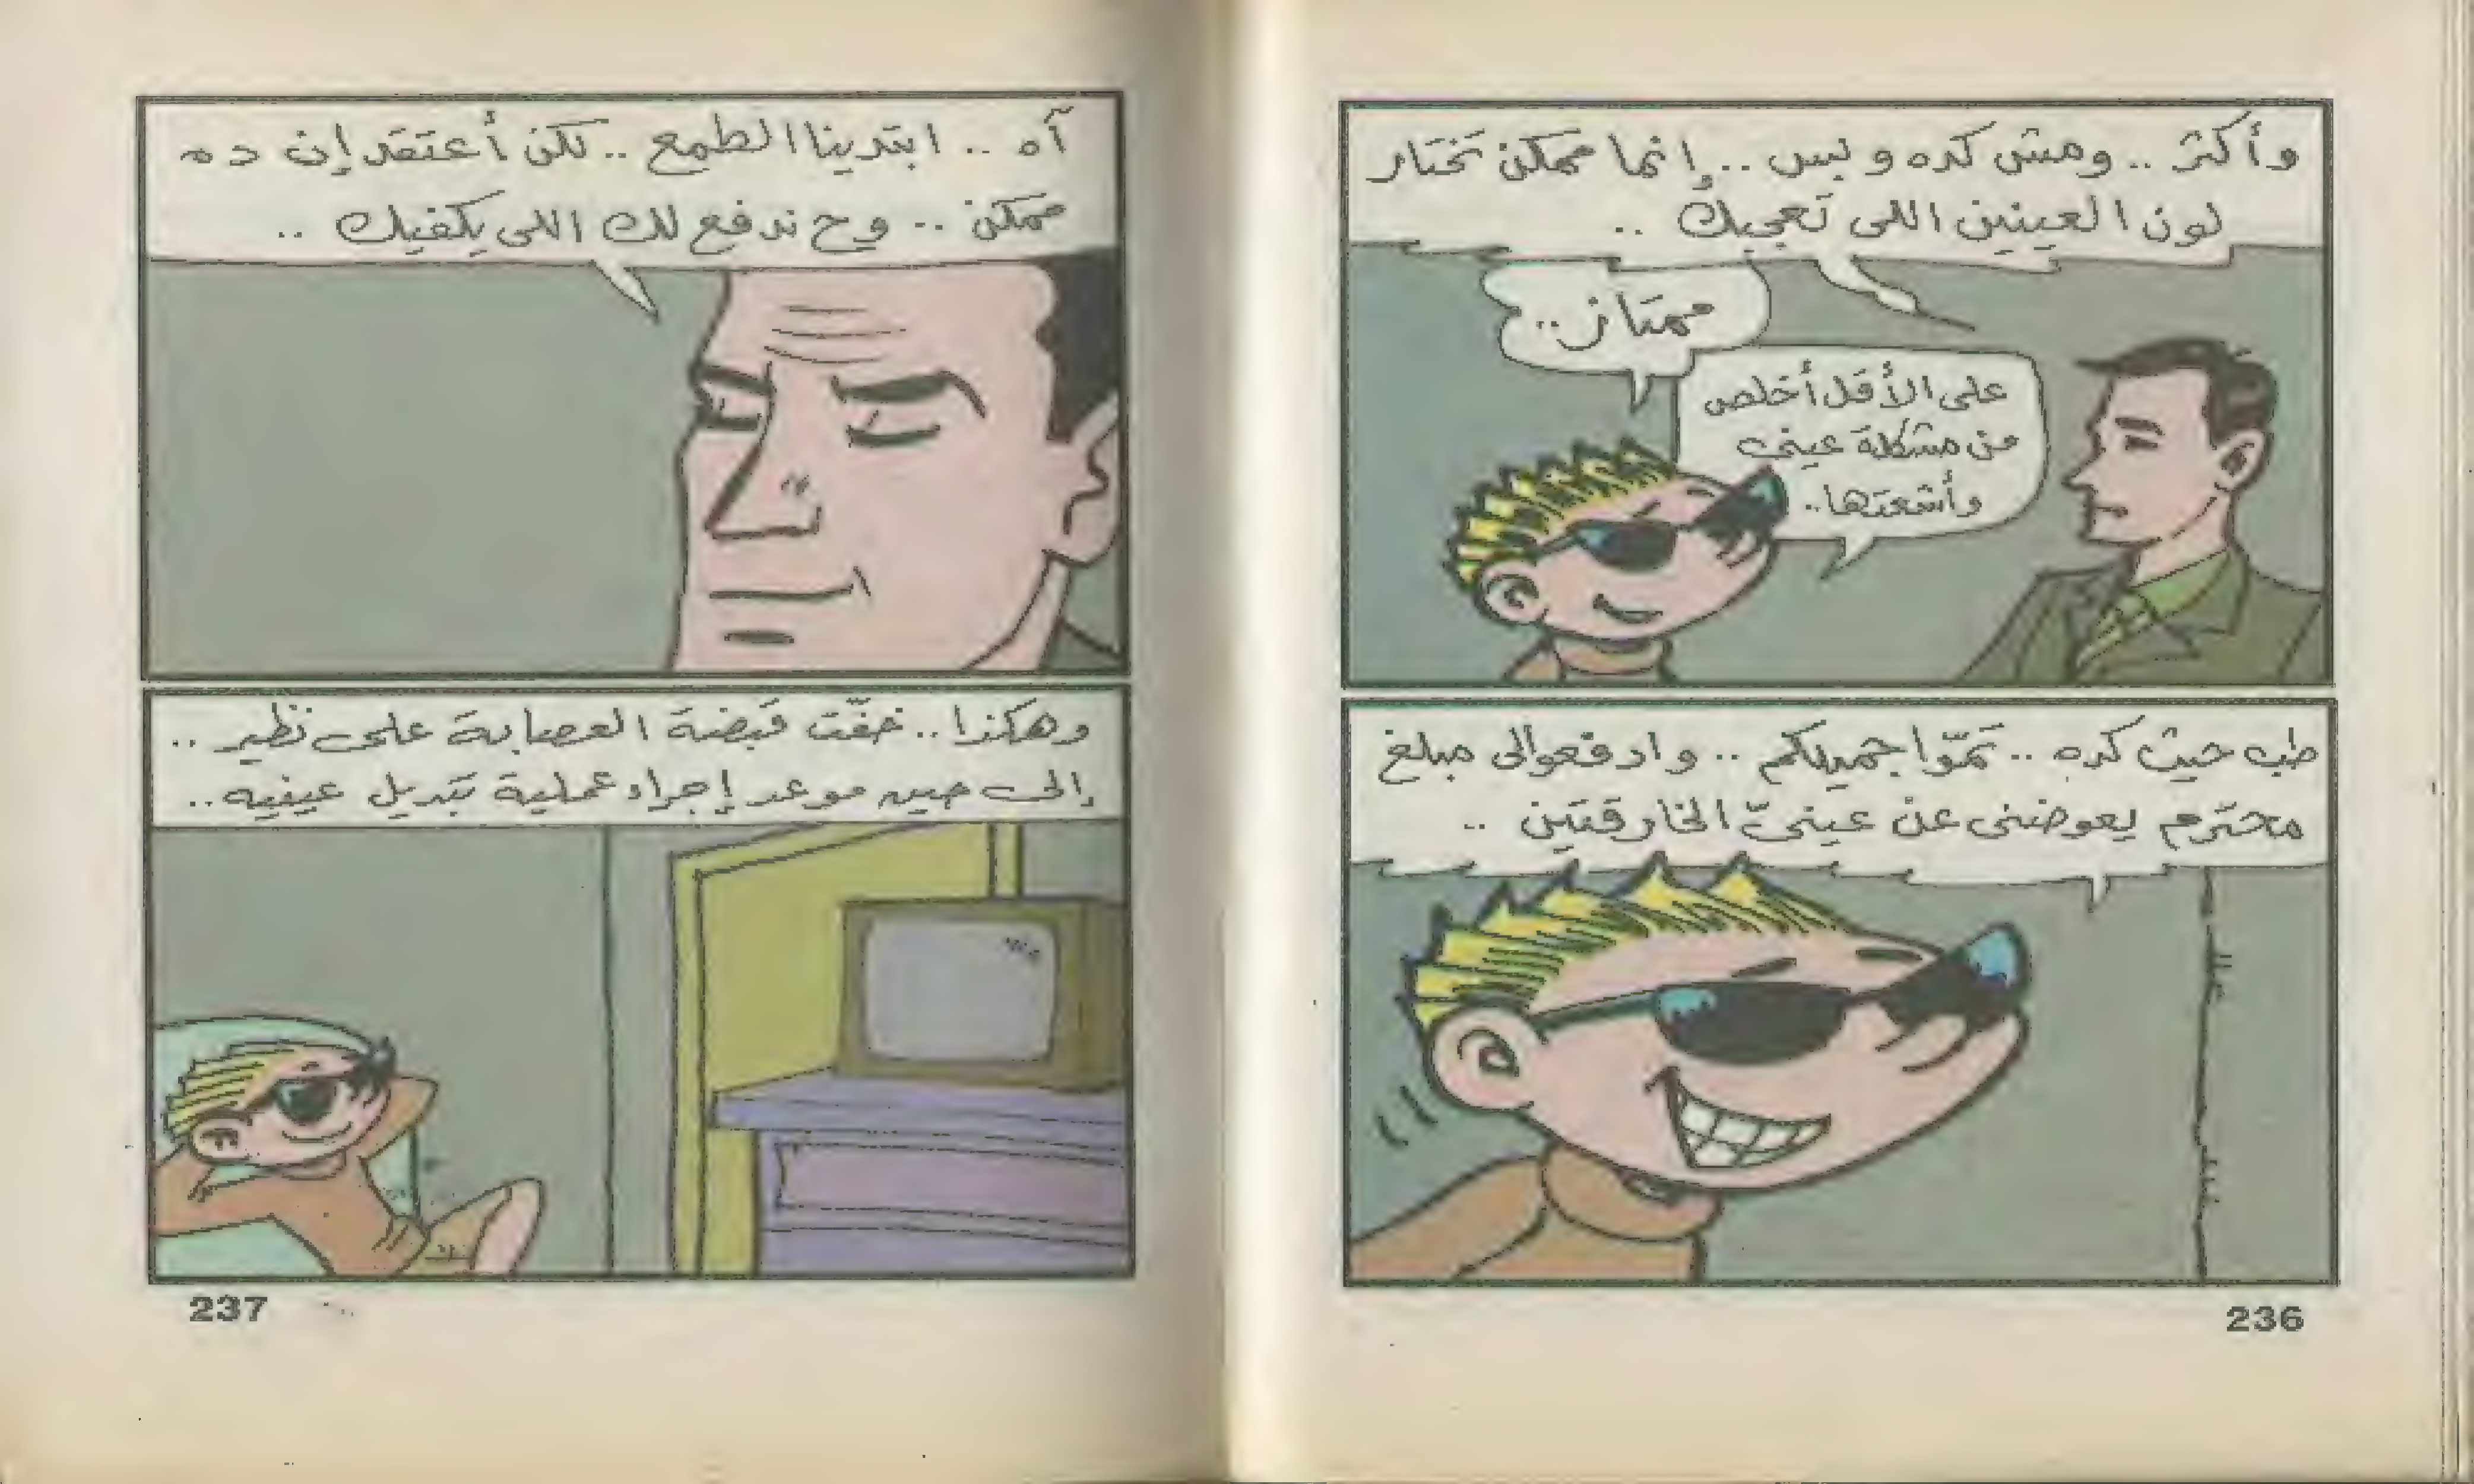 وأكثر .. ومش كده وبس .. إنما ممكن تختار
لون العينين اللى تعجبك ..
ممتاز ..
على الأقل أخلص
من مشكلة عينى
وأشعتها ..
طب حيث كده .. تمّوا جميلكم .. وادفعوالى مبلغ
محترم يعوضنى عن عينىّ الخارقتين ..
236
آه .. ابتدينا الطمع .. لكن أعتقد إن ده
ممكن .. وح ندفع لك اللى يكفيك ..
وهكذا .. خفّت قبضة العصابة على نظير ..
إلى حين موعد إجراء عملية تبديل عينيه ..
237